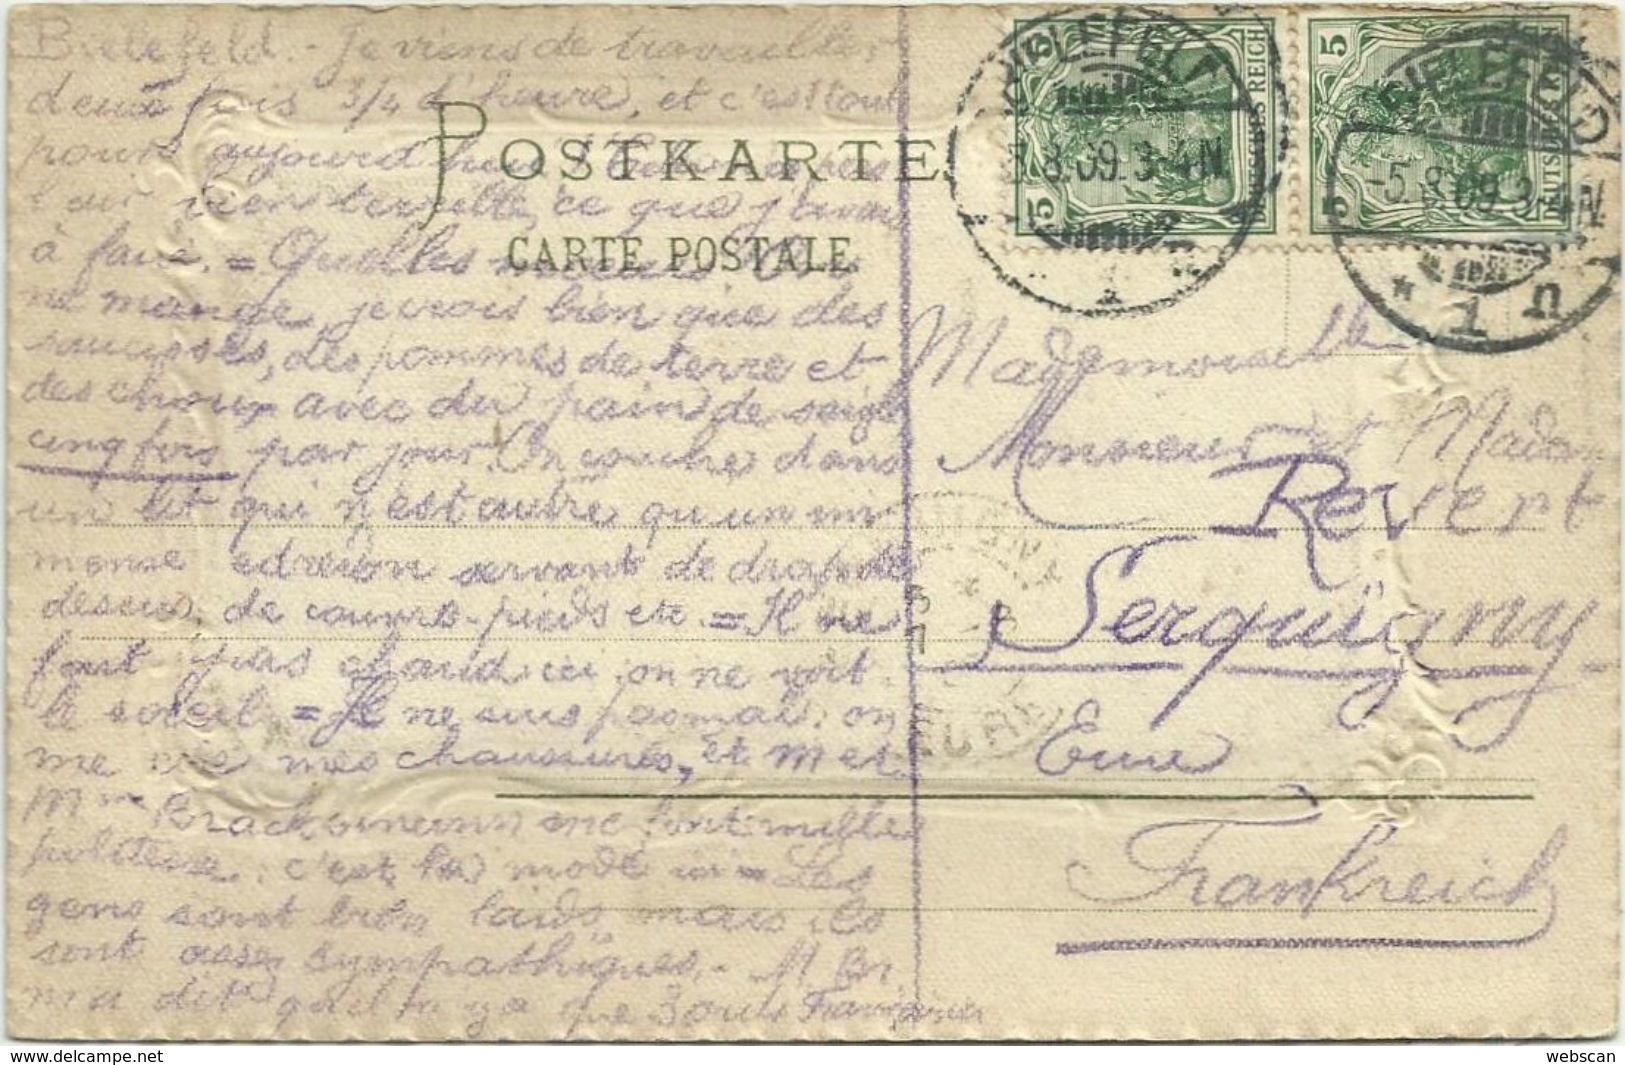 Bielefeld. - Je viens de travailler
deux fois 3/4 d'heure, et c'est tout
pour aujourd'hui
l'air bien terrible, ce que j'avais
à faire. = Quelles
ne mange, je crois bien que des
saucisses, des pommes de terre et
des choux avec du pain de seigle
cinq fois par jour. On couche dans
un lit qui n'est autre qu'un im-
mense édredon servant de drap de
dessus, de couvre-pieds etc = Il ne
fait pas chaud ici, on ne voit
le soleil = Je ne suis pas mal: on
me cire mes chaussures, et M et
Mme me font mille
politesse: c'est la mode ici = Les
gens sont bien laids, mais ils
sont assez sympathiques. - M. Br.
m'a dit qu'il n'y a que 3 ou 4 Français
POSTKARTE
CARTE POSTALE
BIELEFELD
5.8.09.3-4N
* 1 n
BIELEFELD
-5.8.09.3-4N
* 1 n
5 DEUTSCHES REICH 5
5 DEUTSCHES REICH
Mademoiselle
Monsieur et Madame
Revert
Serquigny
Eure
Frankreich
http://www.delcampe.net
webscan